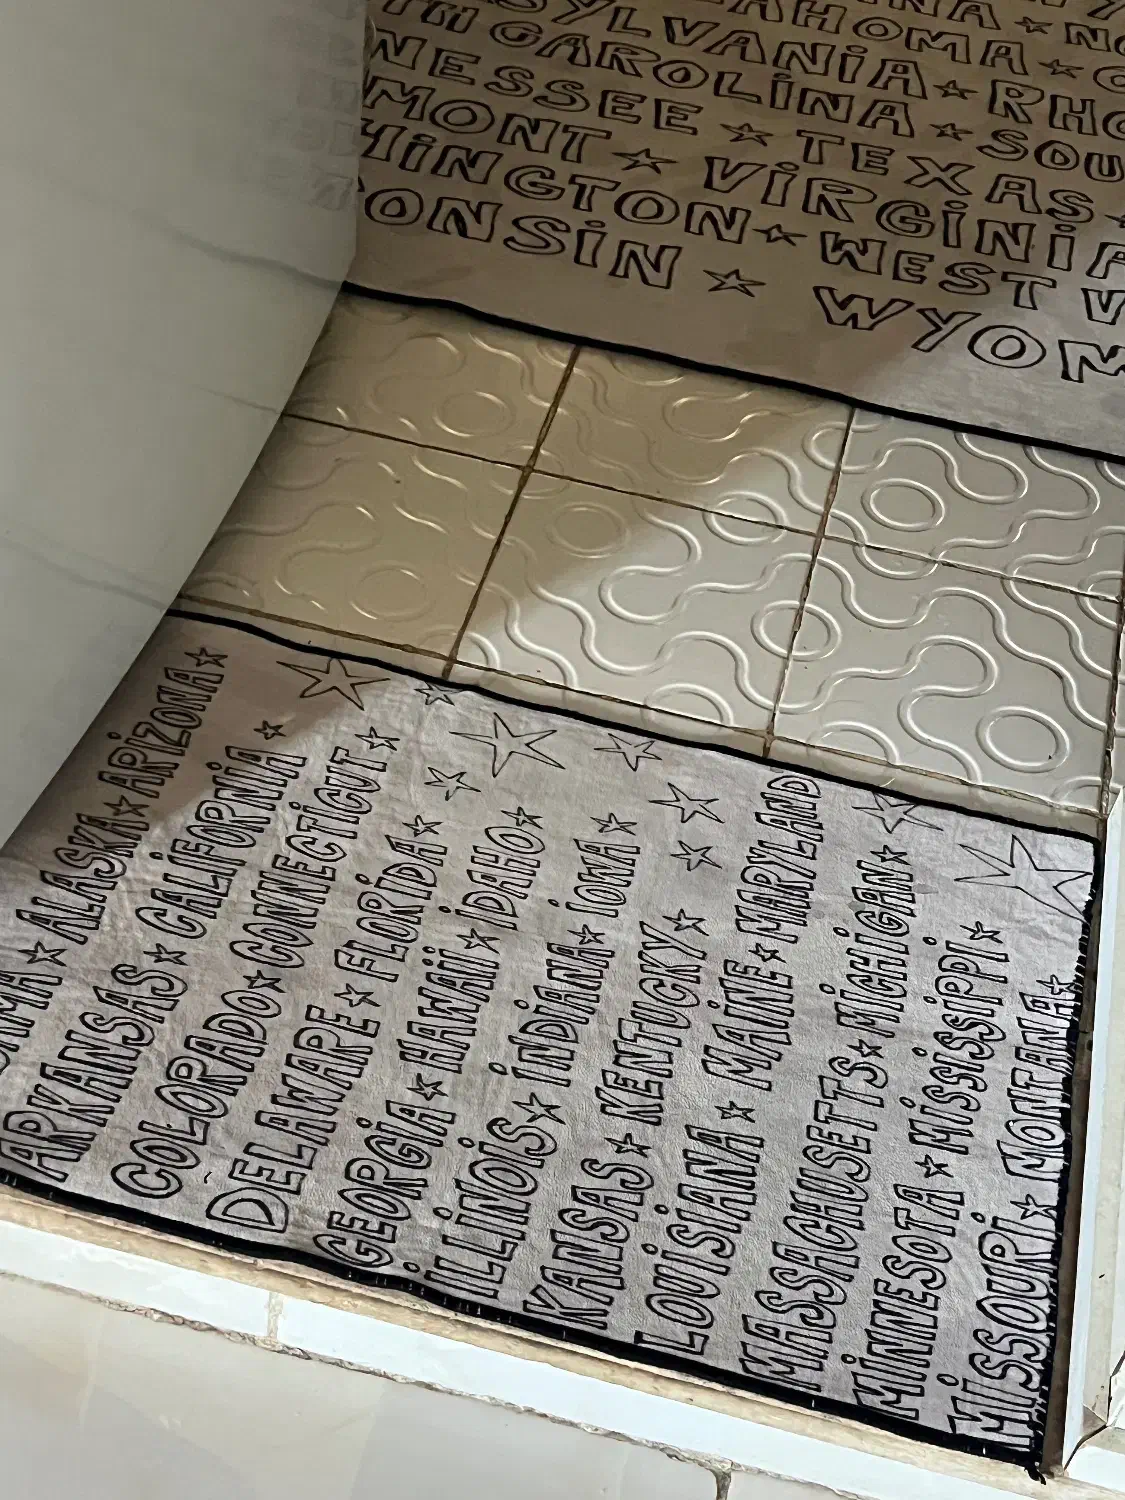 SYLVANIA ★ RHO
CAROLINA ★ SOU
NESSEE ★ TEXAS ★
MONT ★ VIRGINIA
HINGTON ★ WEST V
ONSIN ★ WYOM
ALASKA ★ ARIZONA ★
ARKANSAS ★ CALIFORNIA ★
COLORADO ★ CONNECTICUT ★
DELAWARE ★ FLORIDA ★
GEORGIA ★ HAWAII ★ IDAHO ★
ILLINOIS ★ INDIANA ★ IOWA ★
KANSAS ★ KENTUCKY ★
LOUISIANA ★ MAINE ★ MARYLAND
MASSACHUSETTS ★ MICHIGAN ★
MINNESOTA ★ MISSISSIPPI ★
MISSOURI ★ MONTANA ★